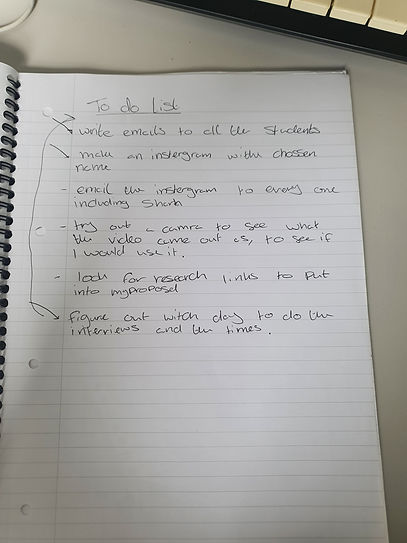 To do list
write emails to all the students
make an instergram with chossen
name
- email the instergram to every one
including Shank
- try out a camra to see what
the video came out as, to see if
I would use it.
- look for research links to put
into my proposal
figure out witch day to do the
interviews and the times.